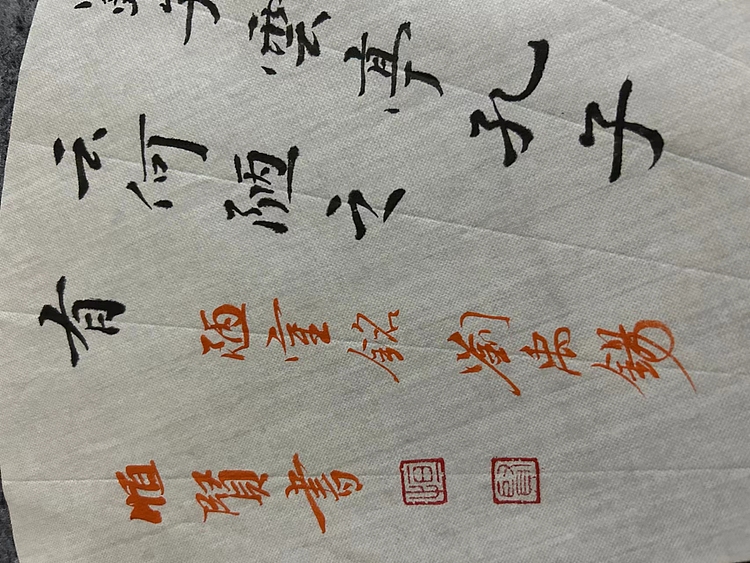 雲亭孔子
云何陋之
有
陋室銘 劉禹錫
恒賢書